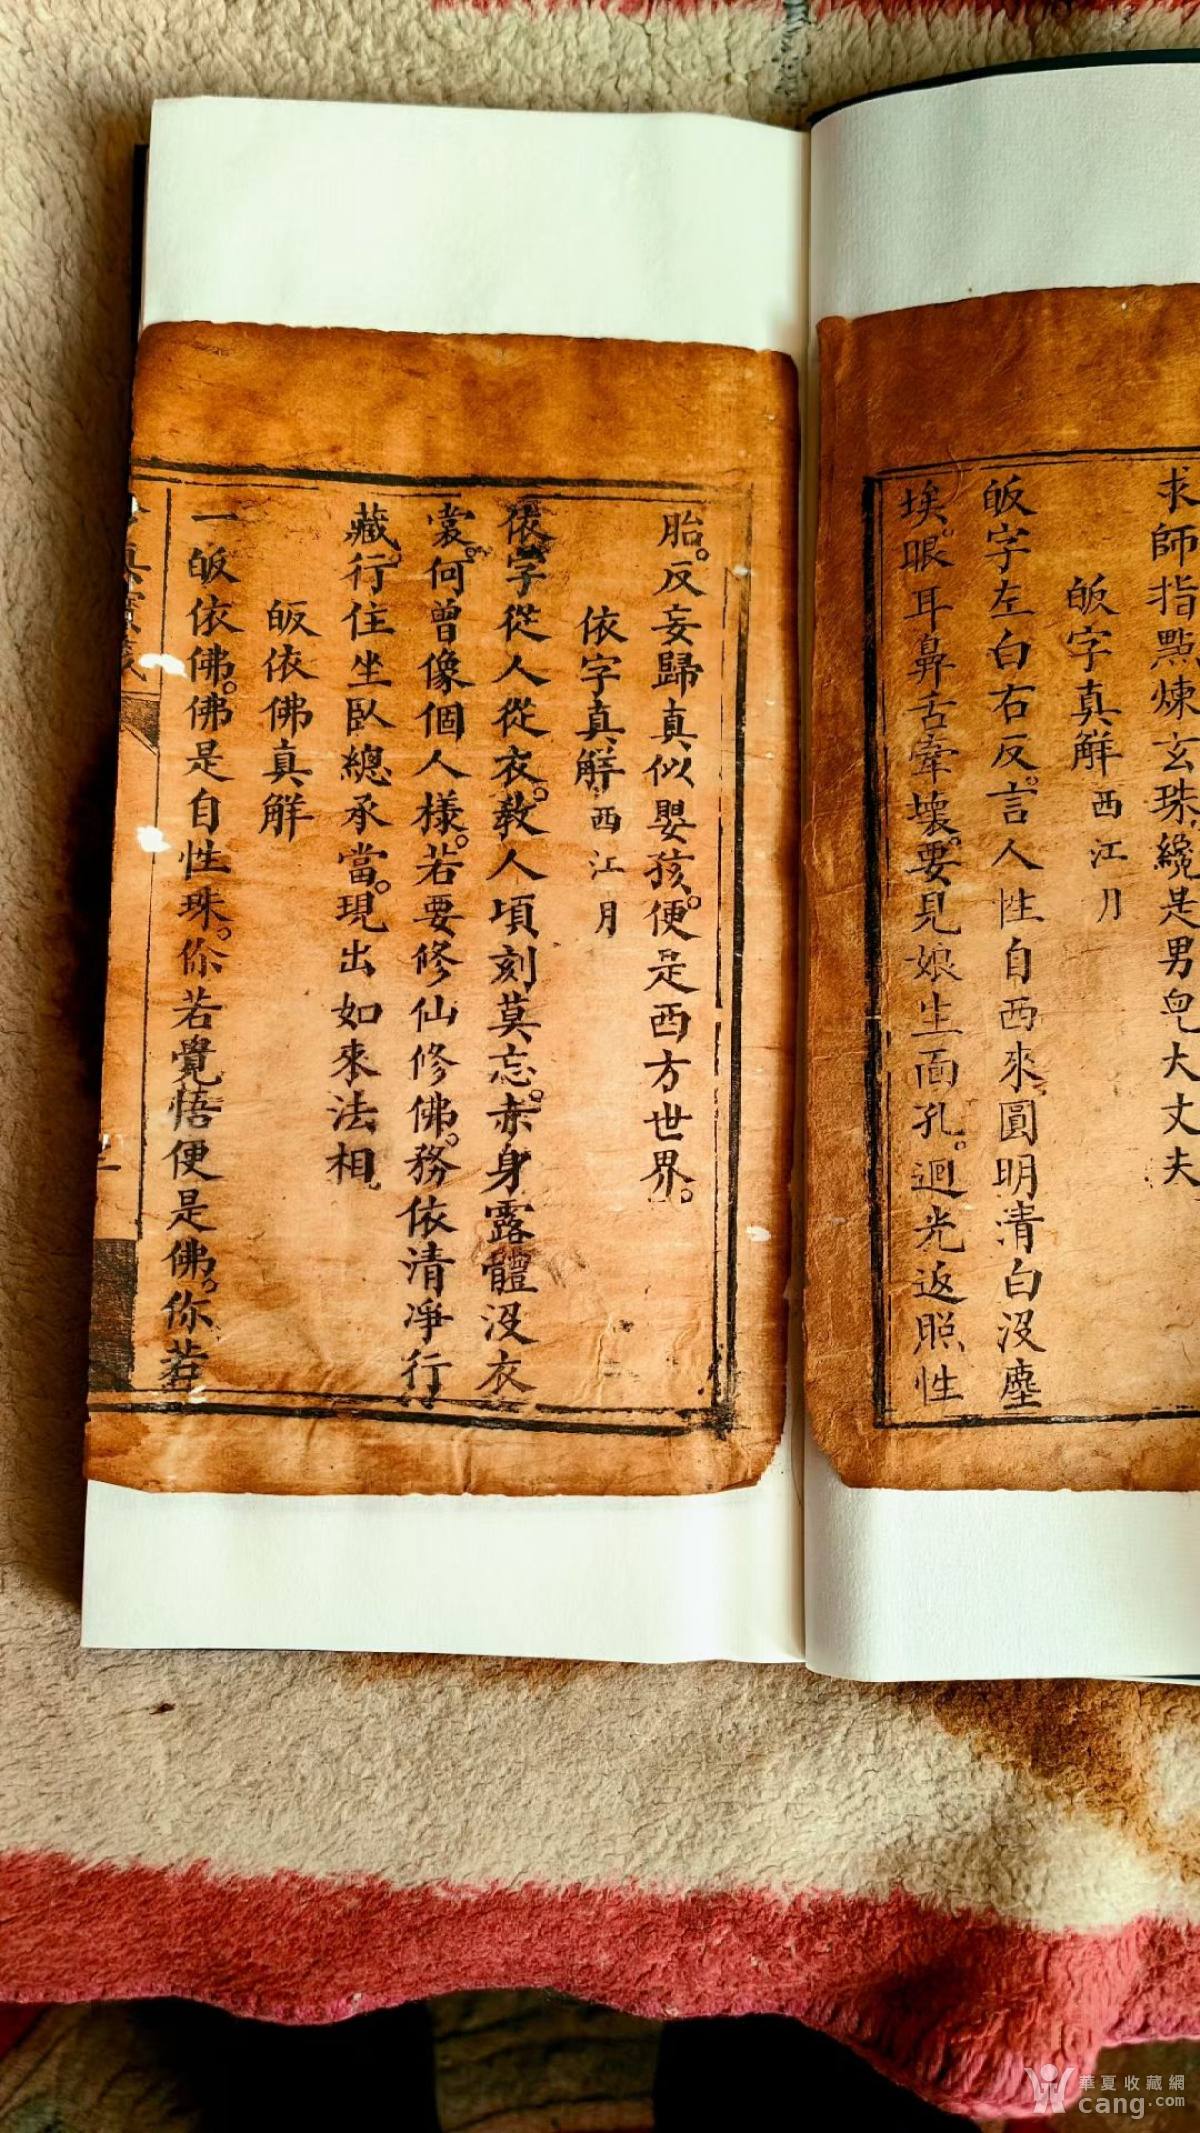 求師指點煉玄珠纔是男兒大丈夫
皈字真解 西江月
皈字左白右反。言人性自西來圓明清白沒塵
埃。眼耳鼻舌牽壞。要見娘生面孔。迴光返照性
胎。反妄歸真似嬰孩。便是西方世界。
依字真解 西江月
依字從人從衣。教人頃刻莫忘。赤身露體沒衣
裳。何曾像個人樣。若要修仙修佛。務依清凈行
藏。行住坐臥總承當。現出如來法相
皈依佛真解
一皈依佛。佛是自性珠。你若覺悟便是佛。你若
華夏收藏網
cang.com